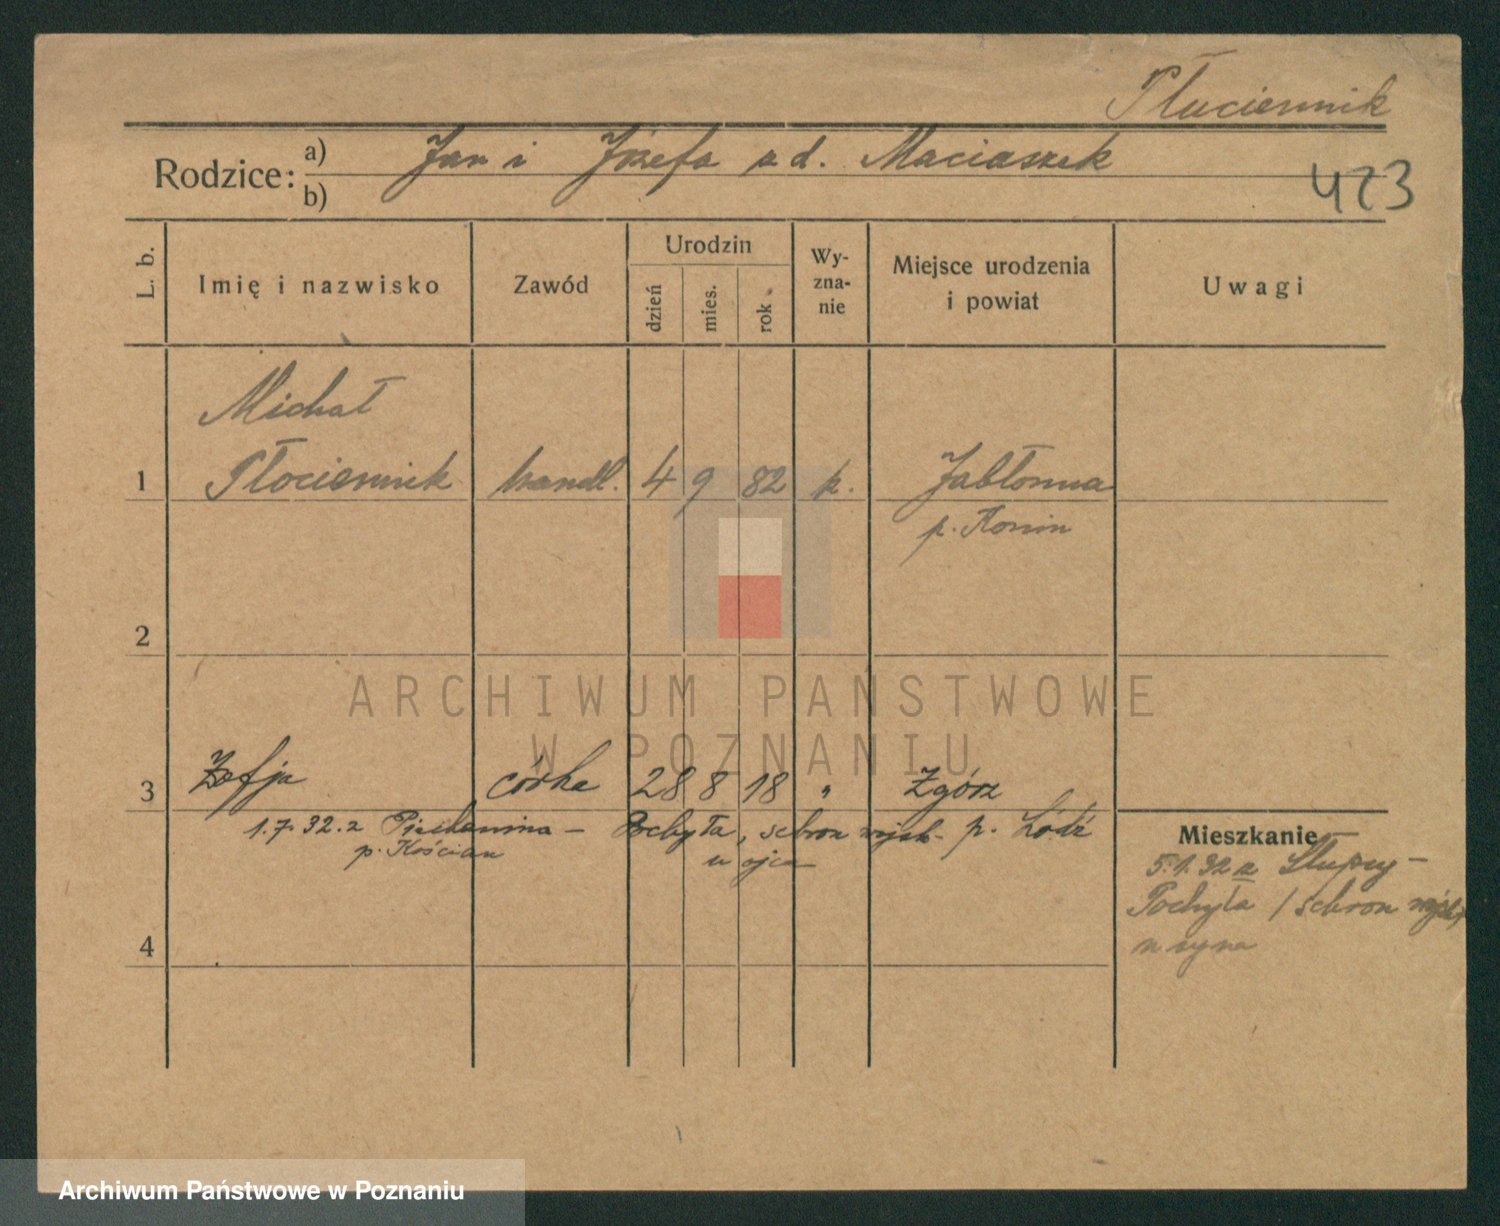 Płuciennik
Rodzice: a) Jan i Józefa z d. Maciaszek
b)
423
L. b.
Imię i nazwisko
Zawód
Urodzin
dzień
mies.
rok
Wy-
zna-
nie
Miejsce urodzenia
i powiat
Uwagi
Michał
1 Płociennik handl. 4 9 82 k. Jabłonna
p. Konin
2
ARCHIWUM PAŃSTWOWE
W POZNANIU
3 Zofja córka 28 8 18 " Zgórz
1.7.32 z Piechanina – Pochyła, schron wojsk. p. Łódź
p. Kościan u ojca
Mieszkanie
5.1.32 z Słupcy –
Pochyła / schron wojsk/
u syna
4
Archiwum Państwowe w Poznaniu